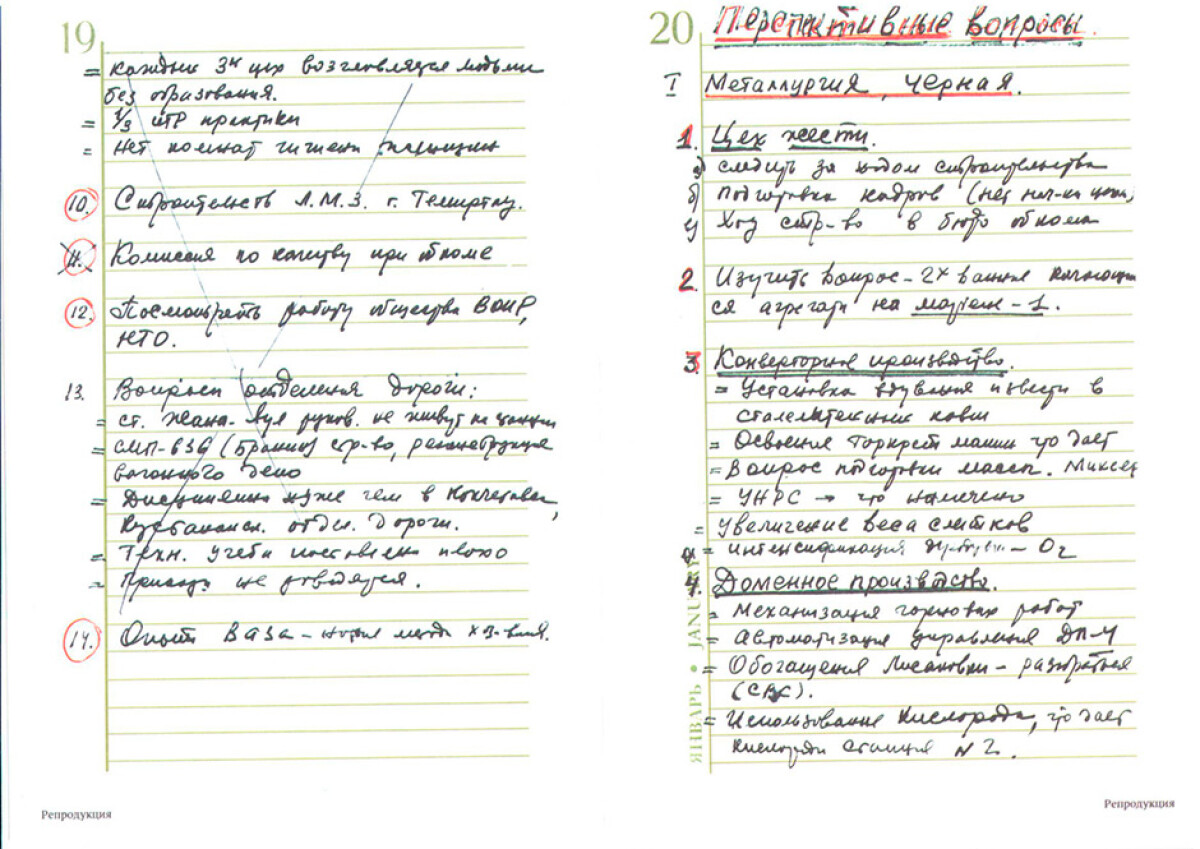 19
= каждый 3й цех возглавляется людьми
без образования.
= 1/3 ИТР практики
= Нет комнат гигиены женщин
10. Строительств Л.М.З. г. Темиртау.
11. Комиссия по качеству при обкоме
12. Посмотреть работу общества ВОИР,
НТО.
13. Вопросы отделения дороги:
= ст. Жана-аул руков. не живут на станции
= СМП-636 ( ) стр-во, реконструкция
вагонного депо
= Дисциплина хуже чем в Кокчетавск,
Кустанайск. отдел. дороги.
= Техн. учеба поставлена плохо
= Приказы не доводятся.
14. Опыт ВАЗа – новые методы хоз-вания.
Репродукция
20
Перспективные вопросы.
I Металлургия, черная.
1. Цех жести.
а) следить за ходом строительства
б) Подготовка кадров (нет нач-ка цеха)
в) Ход стр-во в бюро обкома
2. Изучить вопрос – 2х ванные качающие
ся агрегаты на мартене – 1.
3. Конверторное производство.
= Установка вдувания извести в
сталеплавильные ковши
= Освоение торкрет машин что дает
= Вопрос подготовки массы. Миксер
= УНРС → что намечено
= Увеличение веса слитков
= интенсификация продувки – O2
4. Доменное производство.
= Механизация горновых работ
= Автоматизация управления ДП-4
= Обогащения Лисаковки – разобраться
(СВС).
= Использование кислорода, что дает
кислородн станция N 2.
ЯНВАРЬ • JANUARY
Репродукция